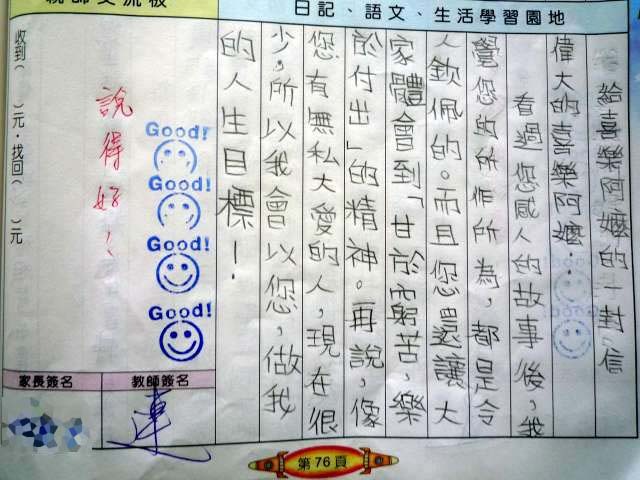 親師交流板
日記、語文、生活學習園地
給喜樂阿嬤的一封信
偉大的喜樂阿嬤：
看過您感人的故事後，我
覺您的所作所為，都是令
人欽佩的。而且您還讓大
家體會到「甘於窮苦，樂
於付出」的精神。再說，像
您有無私大愛的人，現在很
少，所以我會以您，做我
的人生目標！
Good!
Good!
Good!
Good!
說得好！
收到（　）元，找回（　）元
家長簽名
教師簽名
連
第76頁